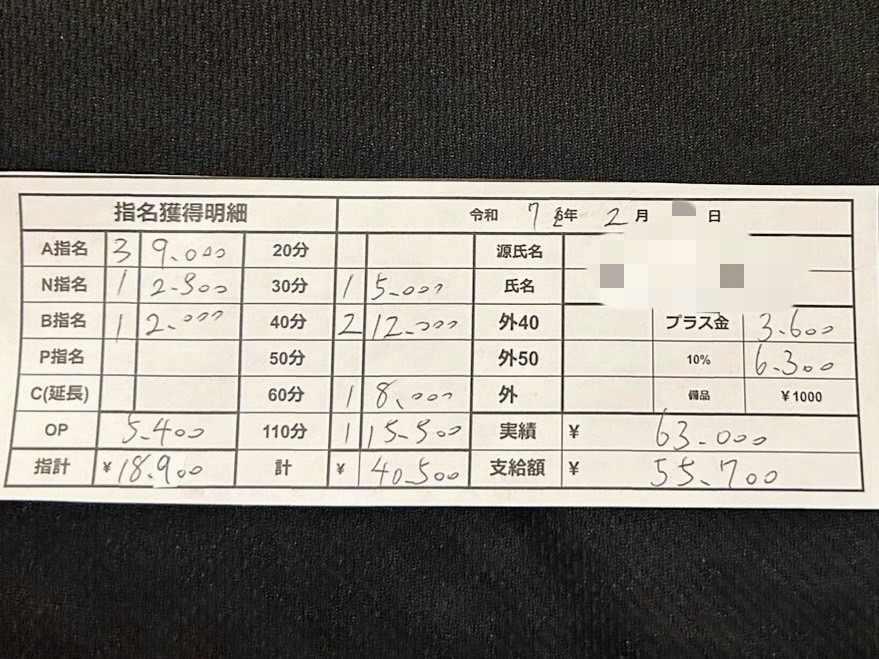 指名獲得明細 令和 7 年 2 月 日
A指名 3 9.000 20分 源氏名
N指名 1 2.500 30分 1 5.000 氏名
B指名 1 2.000 40分 2 12.000 外40 プラス金 3.600
P指名 50分 外50 10% 6.300
C(延長) 60分 1 8.000 外 備品 ¥1000
OP 5.400 110分 1 15.500 実績 ¥ 63.000
指計 ¥ 18.900 計 ¥ 40.500 支給額 ¥ 55.700